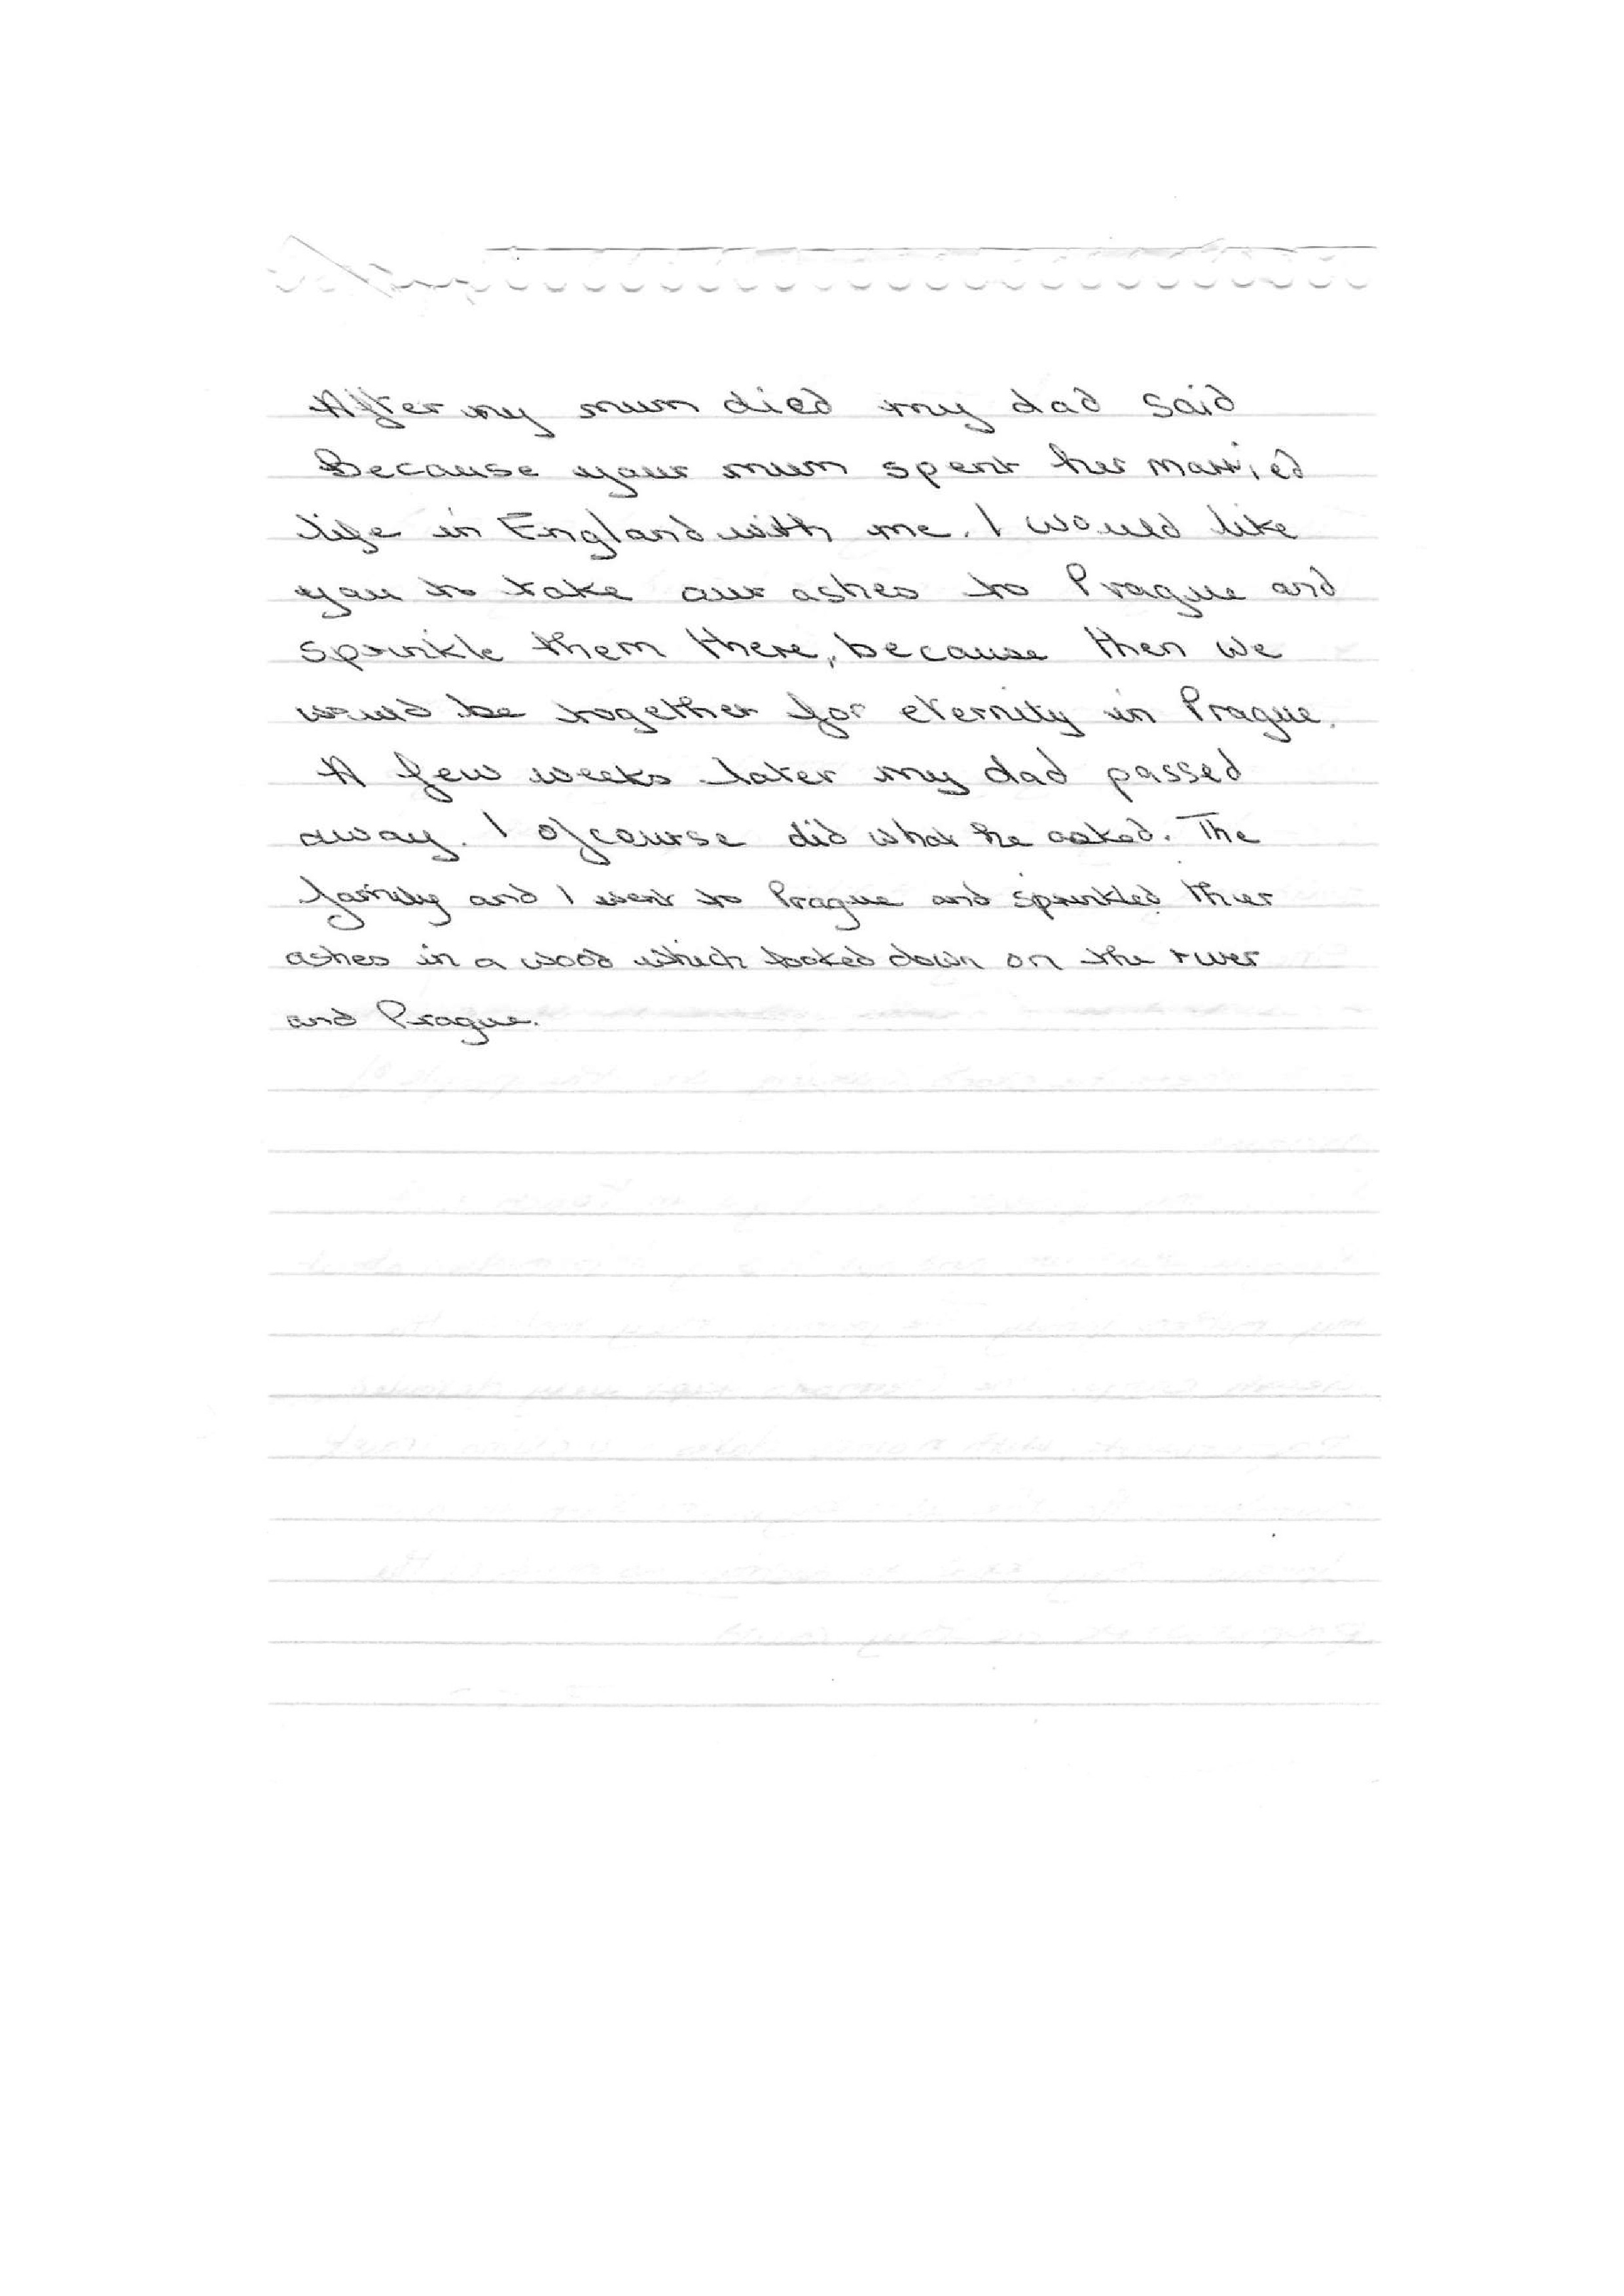 After my mum died my dad said
Because your mum spent her married
life in England with me. I would like
you to take our ashes to Prague and
sprinkle them there, because then we
would be together for eternity in Prague.
A few weeks later my dad passed
away. I ofcourse did what he asked. The
family and I went to Prague and sprinkled their
ashes in a wood which looked down on the river
and Prague.